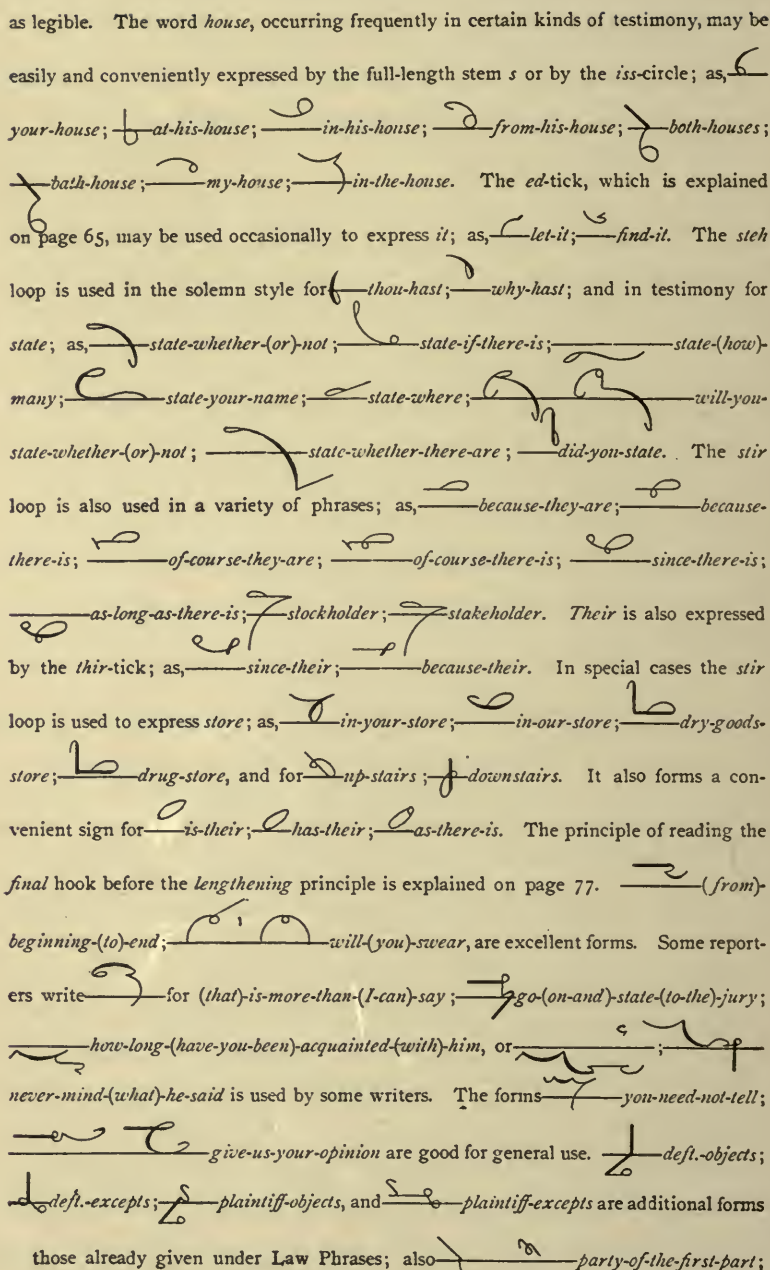 as legible. The word house, occurring frequently in certain kinds of testimony, may be
easily and conveniently expressed by the full-length stem s or by the iss-circle; as,
your-house; at-his-house; in-his-house; from-his-house; both-houses;
bath-house; my-house; in-the-house. The ed-tick, which is explained
on page 65, may be used occasionally to express it; as, let-it; find-it. The steh
loop is used in the solemn style for thou-hast; why-hast; and in testimony for
state; as, state-whether-(or)-not; state-if-there-is; state-(how)-
many; state-your-name; state-where; will-you-
state-whether-(or)-not; state-whether-there-are; did-you-state. The stir
loop is also used in a variety of phrases; as, because-they-are; because-
there-is; of-course-they-are; of-course-there-is; since-there-is;
as-long-as-there-is; stockholder; stakeholder. Their is also expressed
by the thir-tick; as, since-their; because-their. In special cases the stir
loop is used to express store; as, in-your-store; in-our-store; dry-goods-
store; drug-store, and for up-stairs; downstairs. It also forms a con-
venient sign for is-their; has-their; as-there-is. The principle of reading the
final hook before the lengthening principle is explained on page 77. (from)-
beginning-(to)-end; will-(you)-swear, are excellent forms. Some report-
ers write for (that)-is-more-than-(I-can)-say; go-(on-and)-state-(to-the)-jury;
how-long-(have-you-been)-acquainted-(with)-him, or ;
never-mind-(what)-he-said is used by some writers. The forms you-need-not-tell;
give-us-your-opinion are good for general use. deft.-objects;
deft.-excepts; plaintiff-objects, and plaintiff-excepts are additional forms
those already given under Law Phrases; also party-of-the-first-part;